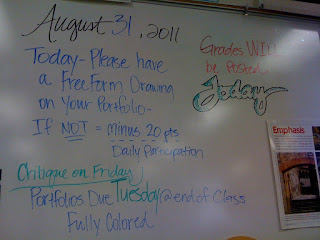 August 31, 2011
Today- Please have
a Free Form Drawing
on Your Portfolio-
If NOT = minus 20 pts
Daily Participation
Critique on Friday
Portfolios Due Tuesday @ end of Class
Fully Colored
Grades Will
be Posted
Today
Emphasis